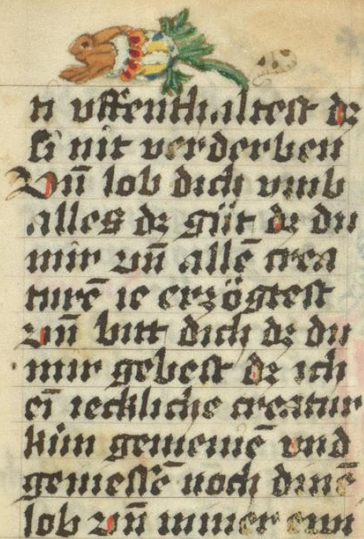 ti vffenthaltest dz
si nit verderben
Vn̄ lob dich vmb
alles dz gůt dz du
mir vn̄ allē crea
turē ie erzögtest
vn̄ bitt dich dz du
mir gebest dz ich
ei̅ ieckliche creatur
kún gemeinē vnd
geniessē noch dinē
lob vn̄ miner ewi